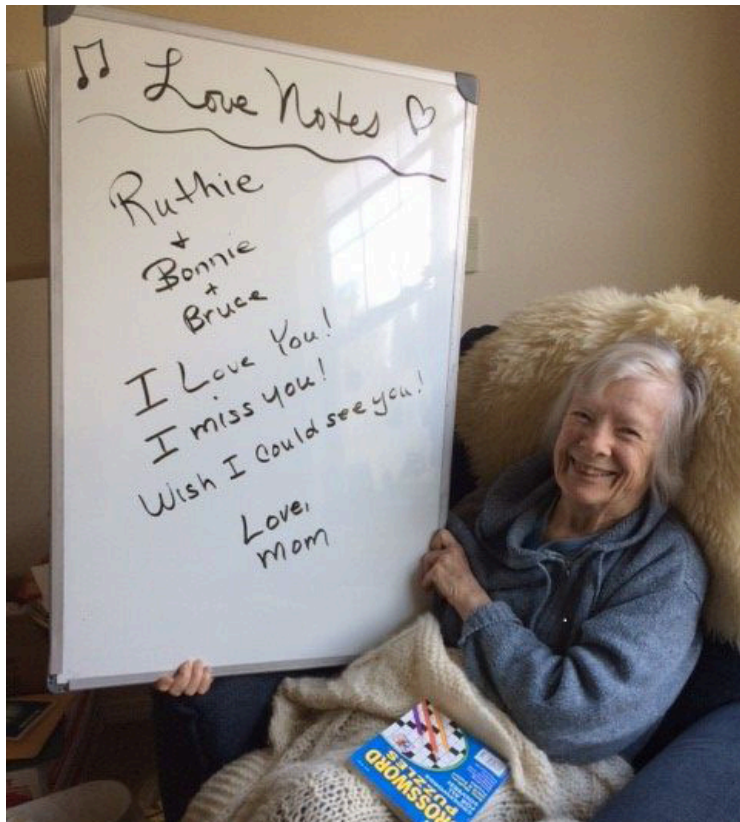 Love Notes
Ruthie
+
Bonnie
+
Bruce
I Love You!
I miss you!
Wish I could see you!
Love,
mom
CROSSWORD
PUZZLES